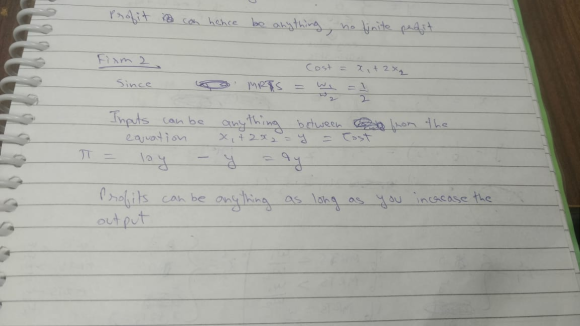 Profit can hence be anything, no finite profit
Firm 2
Cost = x₁ + 2x₂
Since MRTS = w₁/w₂ = 1/2
Inputs can be anything between from the
equation x₁ + 2x₂ = y = Cost
π = 10y - y = 9y
Profits can be anything as long as you increase the
output